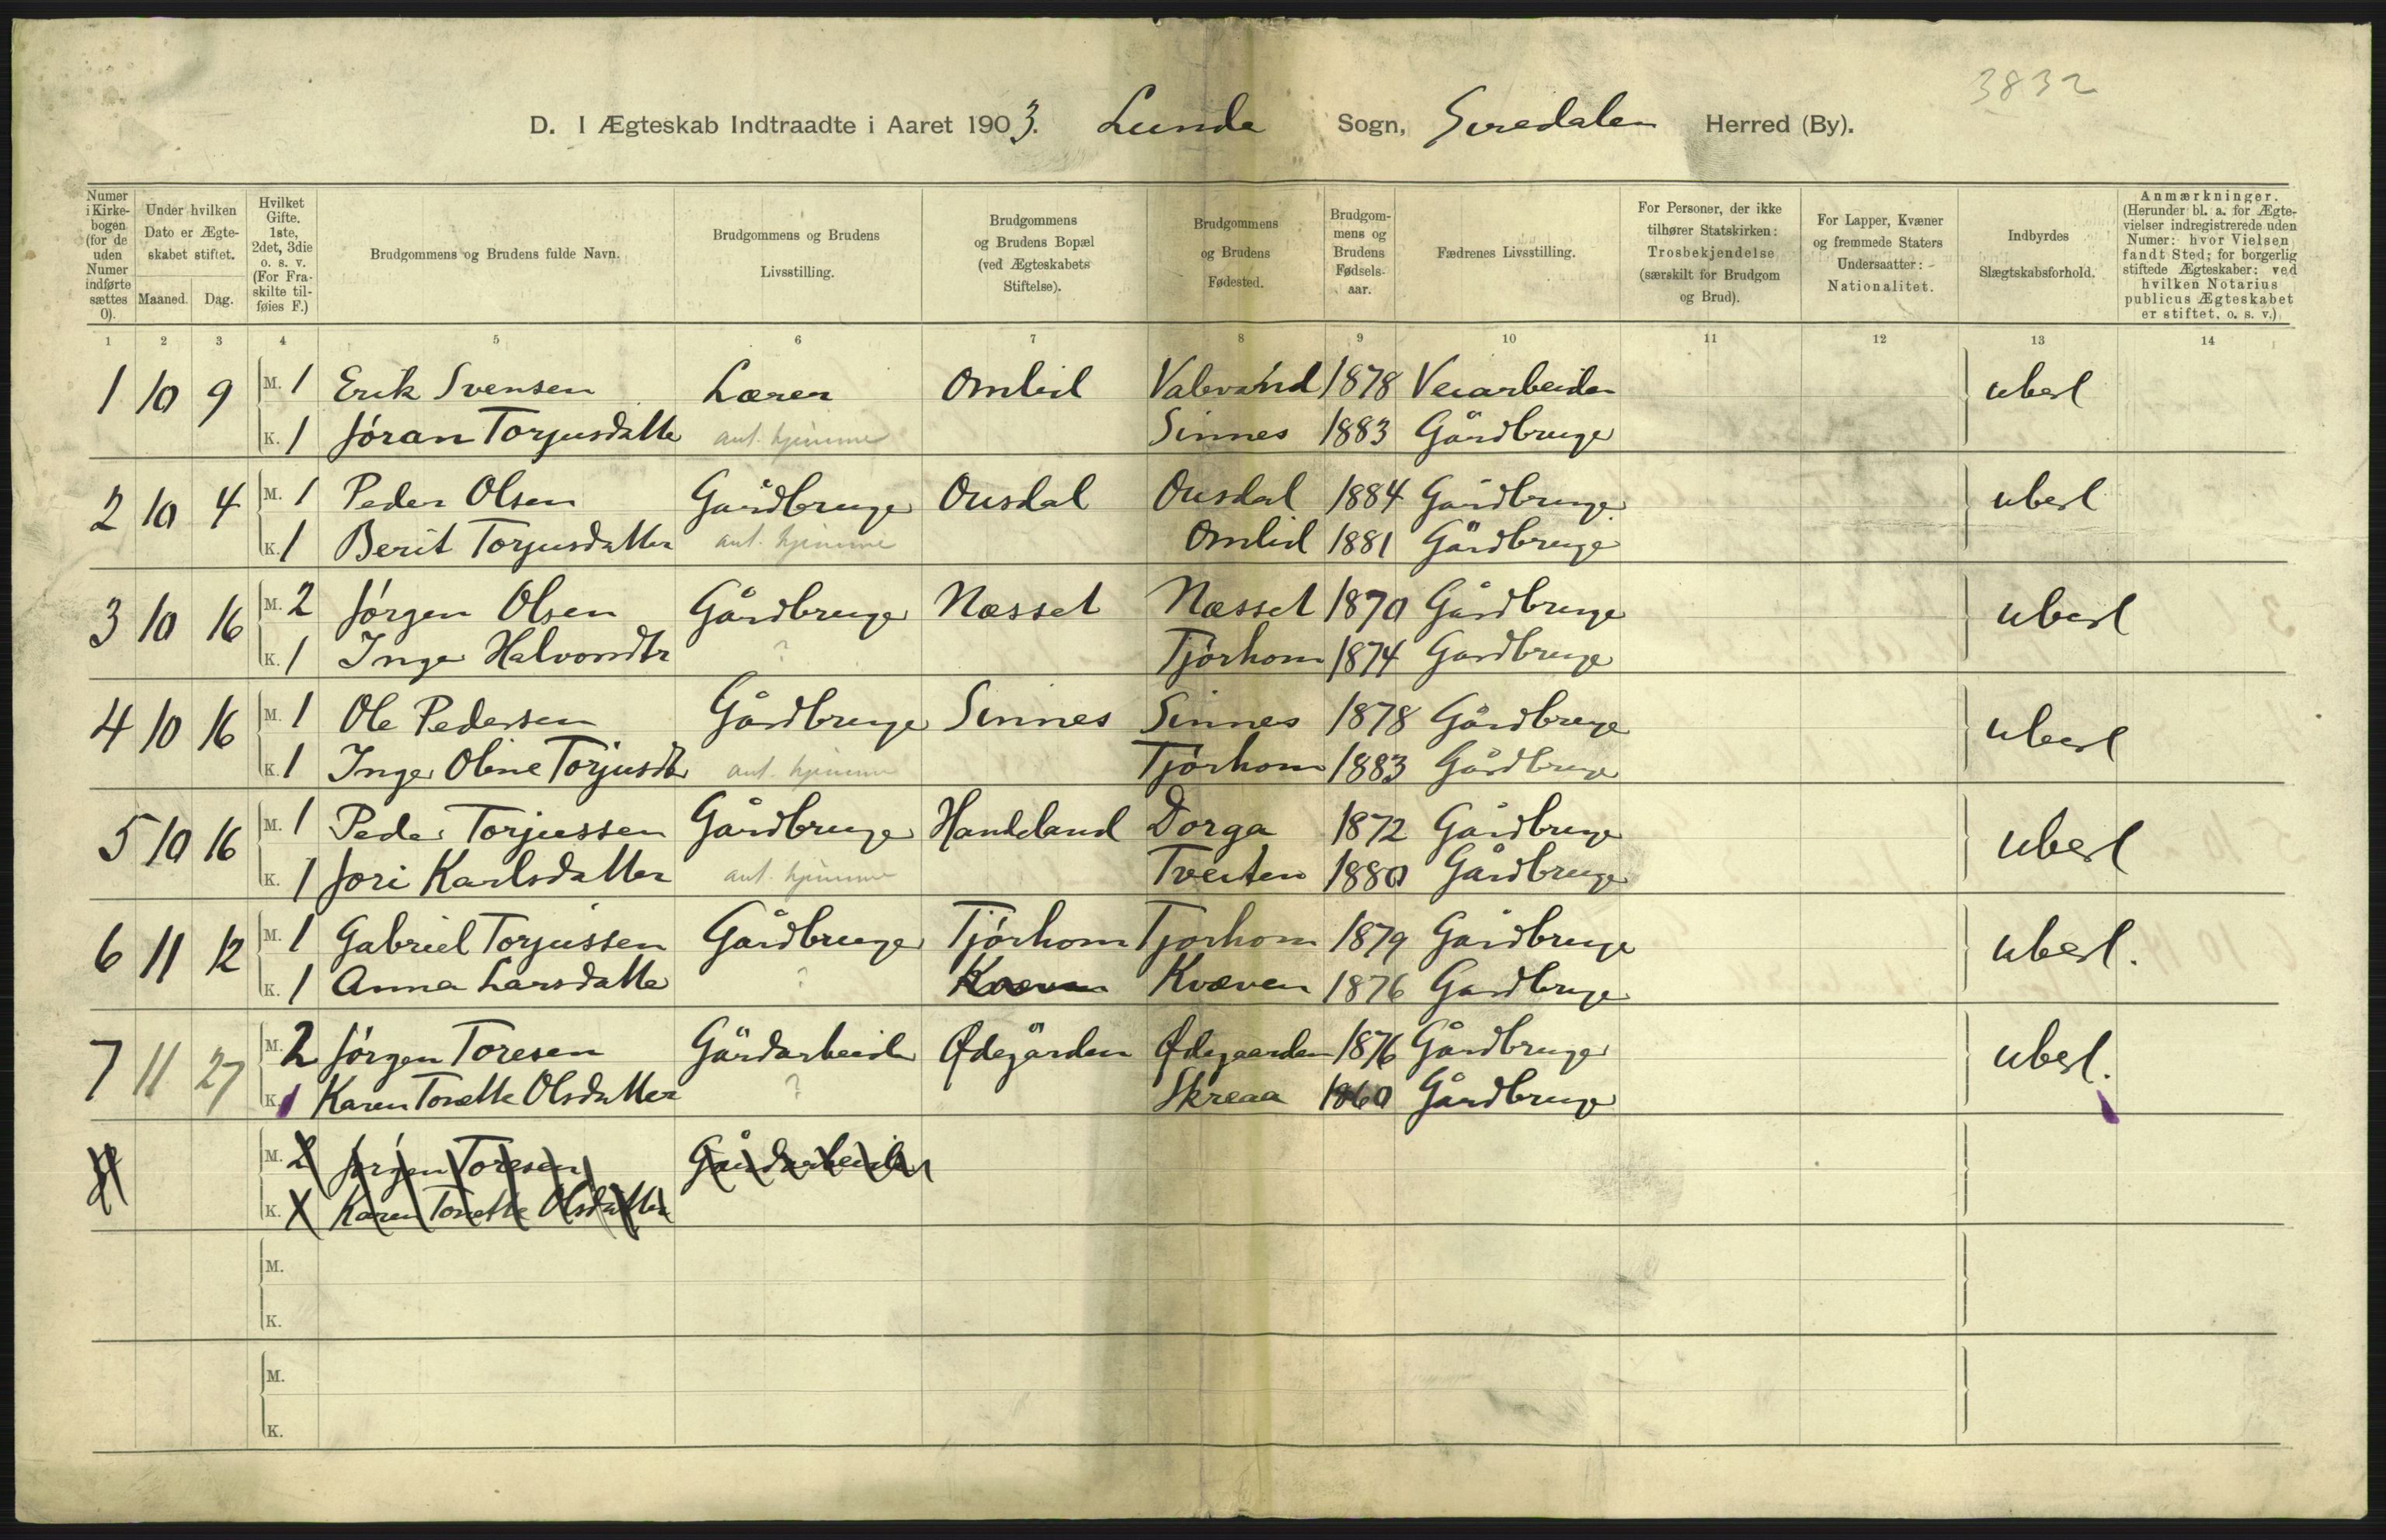 3832
D. I Ægteskab Indtraadte i Aaret 1903. Lunde Sogn, Siredalen Herred (By).
Numer i Kirkebogen (for de uden Numer indførte sættes 0).
Under hvilken Dato er Ægteskabet stiftet.
Maaned. Dag.
Hvilket Gifte. 1ste, 2det, 3die o. s. v. (For Fraskilte tilføies F.)
Brudgommens og Brudens fulde Navn.
Brudgommens og Brudens Livsstilling.
Brudgommens og Brudens Bopæl (ved Ægteskabets Stiftelse).
Brudgommens og Brudens Fødested.
Brudgommens og Brudens Fødselsaar.
Fædrenes Livsstilling.
For Personer, der ikke tilhører Statskirken: Trosbekjendelse (særskilt for Brudgom og Brud).
For Lapper, Kvæner og fremmede Staters Undersaatter: Nationalitet.
Indbyrdes Slægtskabsforhold.
Anmærkninger. (Herunder bl. a. for Ægtevielser indregistrerede uden Numer: hvor Vielsen fandt Sted; for borgerlig stiftede Ægteskaber: ved hvilken Notarius publicus Ægteskabet er stiftet, o. s. v.)
1 2 3 4 5 6 7 8 9 10 11 12 13 14
1 10 9 M. 1 Erik Svensen Lærer Omlid Valevand 1878 Veiarbeider ubesl
K. 1 Jóran Torjusdatte ant. hjemme Sinnes 1883 Gårdbruge
2 10 4 M. 1 Peder Olsen Gårdbruge Ousdal Ousdal 1884 Gårdbruge ubesl
K. 1 Berit Torjusdatter ant. hjemme Omlid 1881 Gårdbruge
3 10 16 M. 2 Jórgen Olsen Gårdbruge Næsset Næsset 1870 Gårdbruge ubesl
K. 1 Inger Halvorsdtr ? Tjórhom 1874 Gardbruge
4 10 16 M. 1 Ole Pedersen Gårdbruge Sinnes Sinnes 1878 Gårdbruge ubesl
K. 1 Inger Oline Torjusdtr ant. hjemme Tjórhom 1883 Gårdbruge
5 10 16 M. 1 Peder Torjussen Gårdbruge Haukland Dorga 1872 Gårdbruge ubesl
K. 1 Jori Karlsdatter ant. hjemme Tveiten 1880 Gårdbruge
6 11 12 M. 1 Gabriel Torjussen Gårdbruge Tjórhom Tjorhom 1879 Gårdbruge ubesl.
K. 1 Anna Larsdatte ? Kvæven Kvæven 1876 Gardbruge
7 11 27 M. 2 Jórgen Toresen Gårdarbeide Ødegården Ødegaarden 1876 Gårdbruge ubesl.
K. 1 Karen Tonette Olsdatter ? Skreaa 1860 Gårdbruge
M. 2 Jórgen Toresen Gårdarbeider
K. Karen Tonette Olsdatter
M.
K.
M.
K.